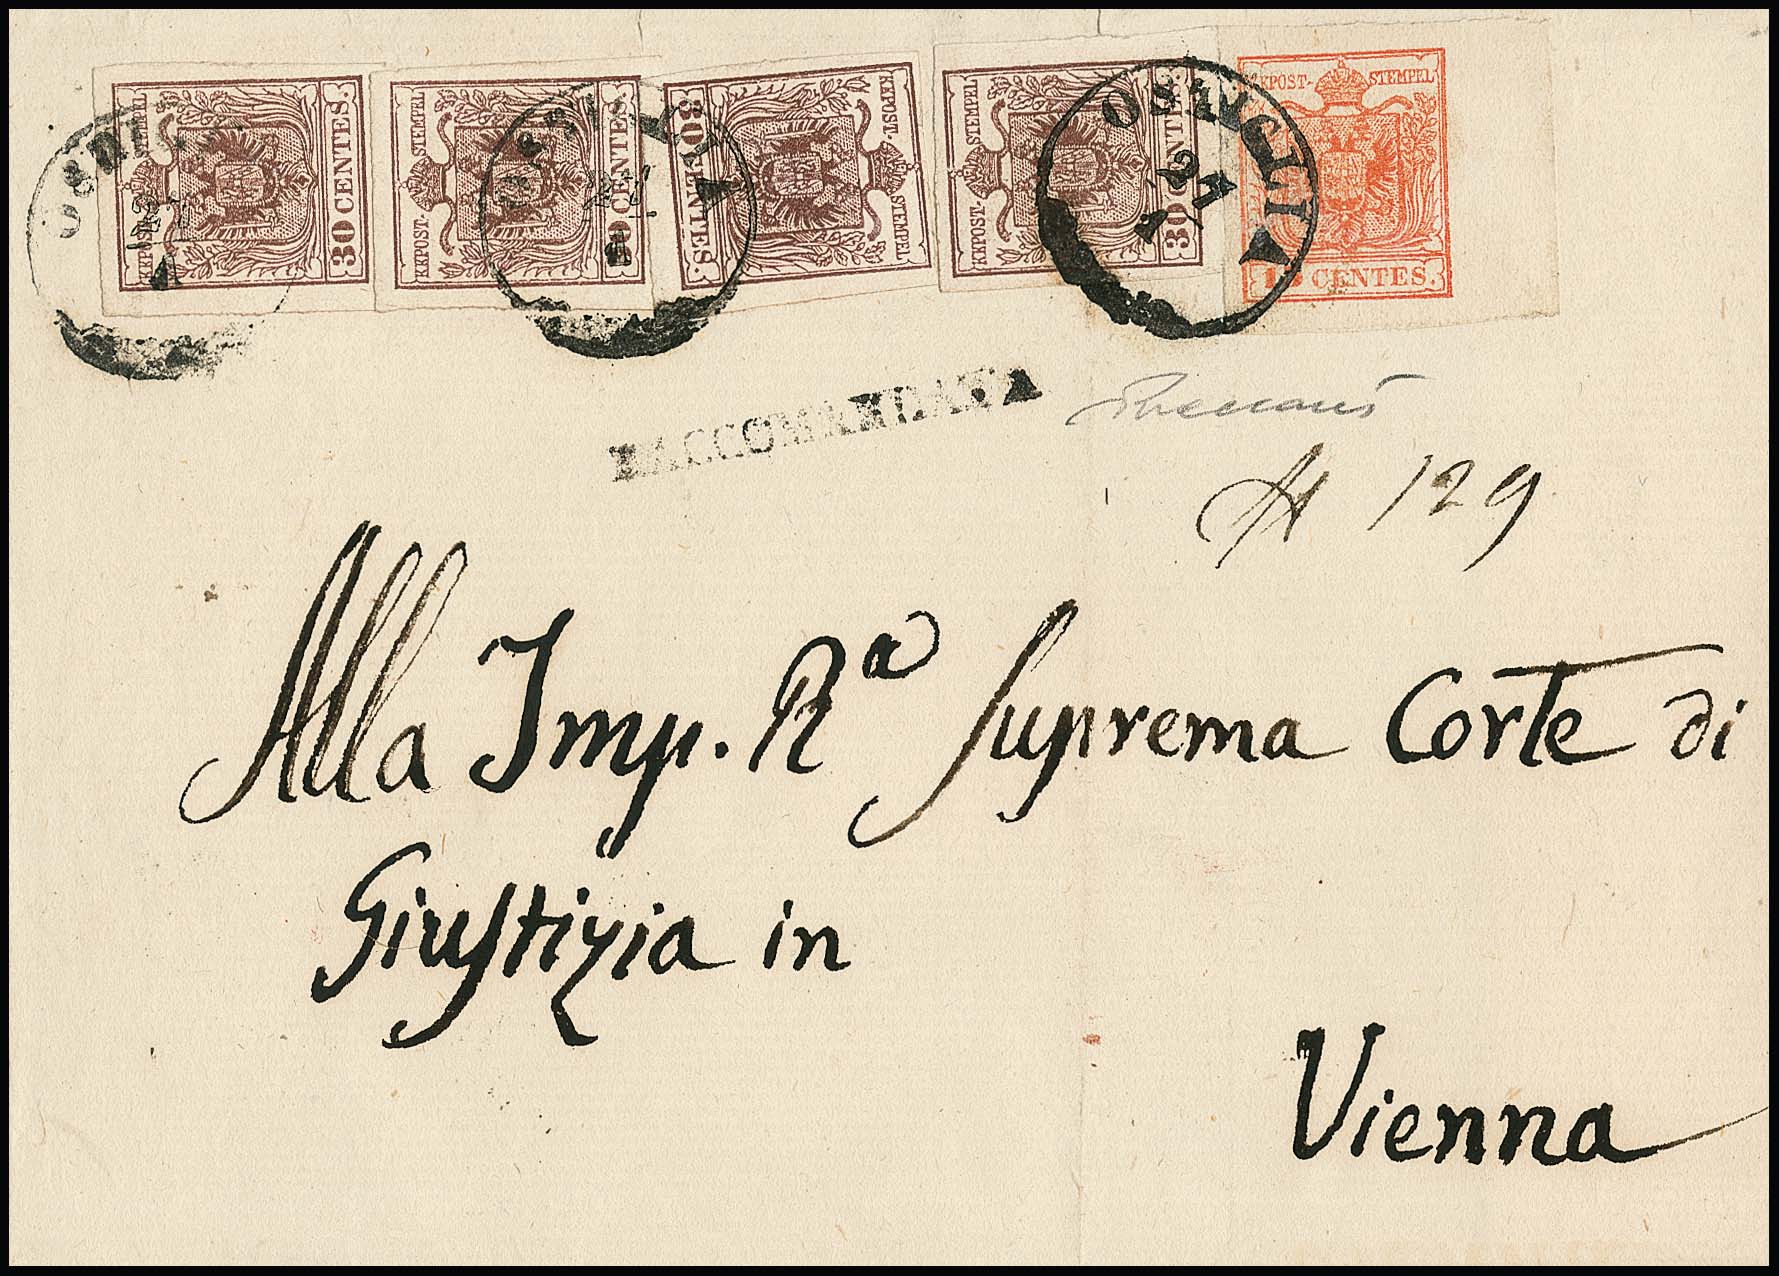 KKPOST-STEMPEL
30 CENTES.
KKPOST-STEMPEL
30 CENTES.
KKPOST-STEMPEL
30 CENTES.
KKPOST-STEMPEL
30 CENTES.
KKPOST-STEMPEL
15 CENTES.
OSTIGLIA
27
RACCOMANDATA
129
Alla Imp. Rª Suprema Corte di
Giustizia in
Vienna